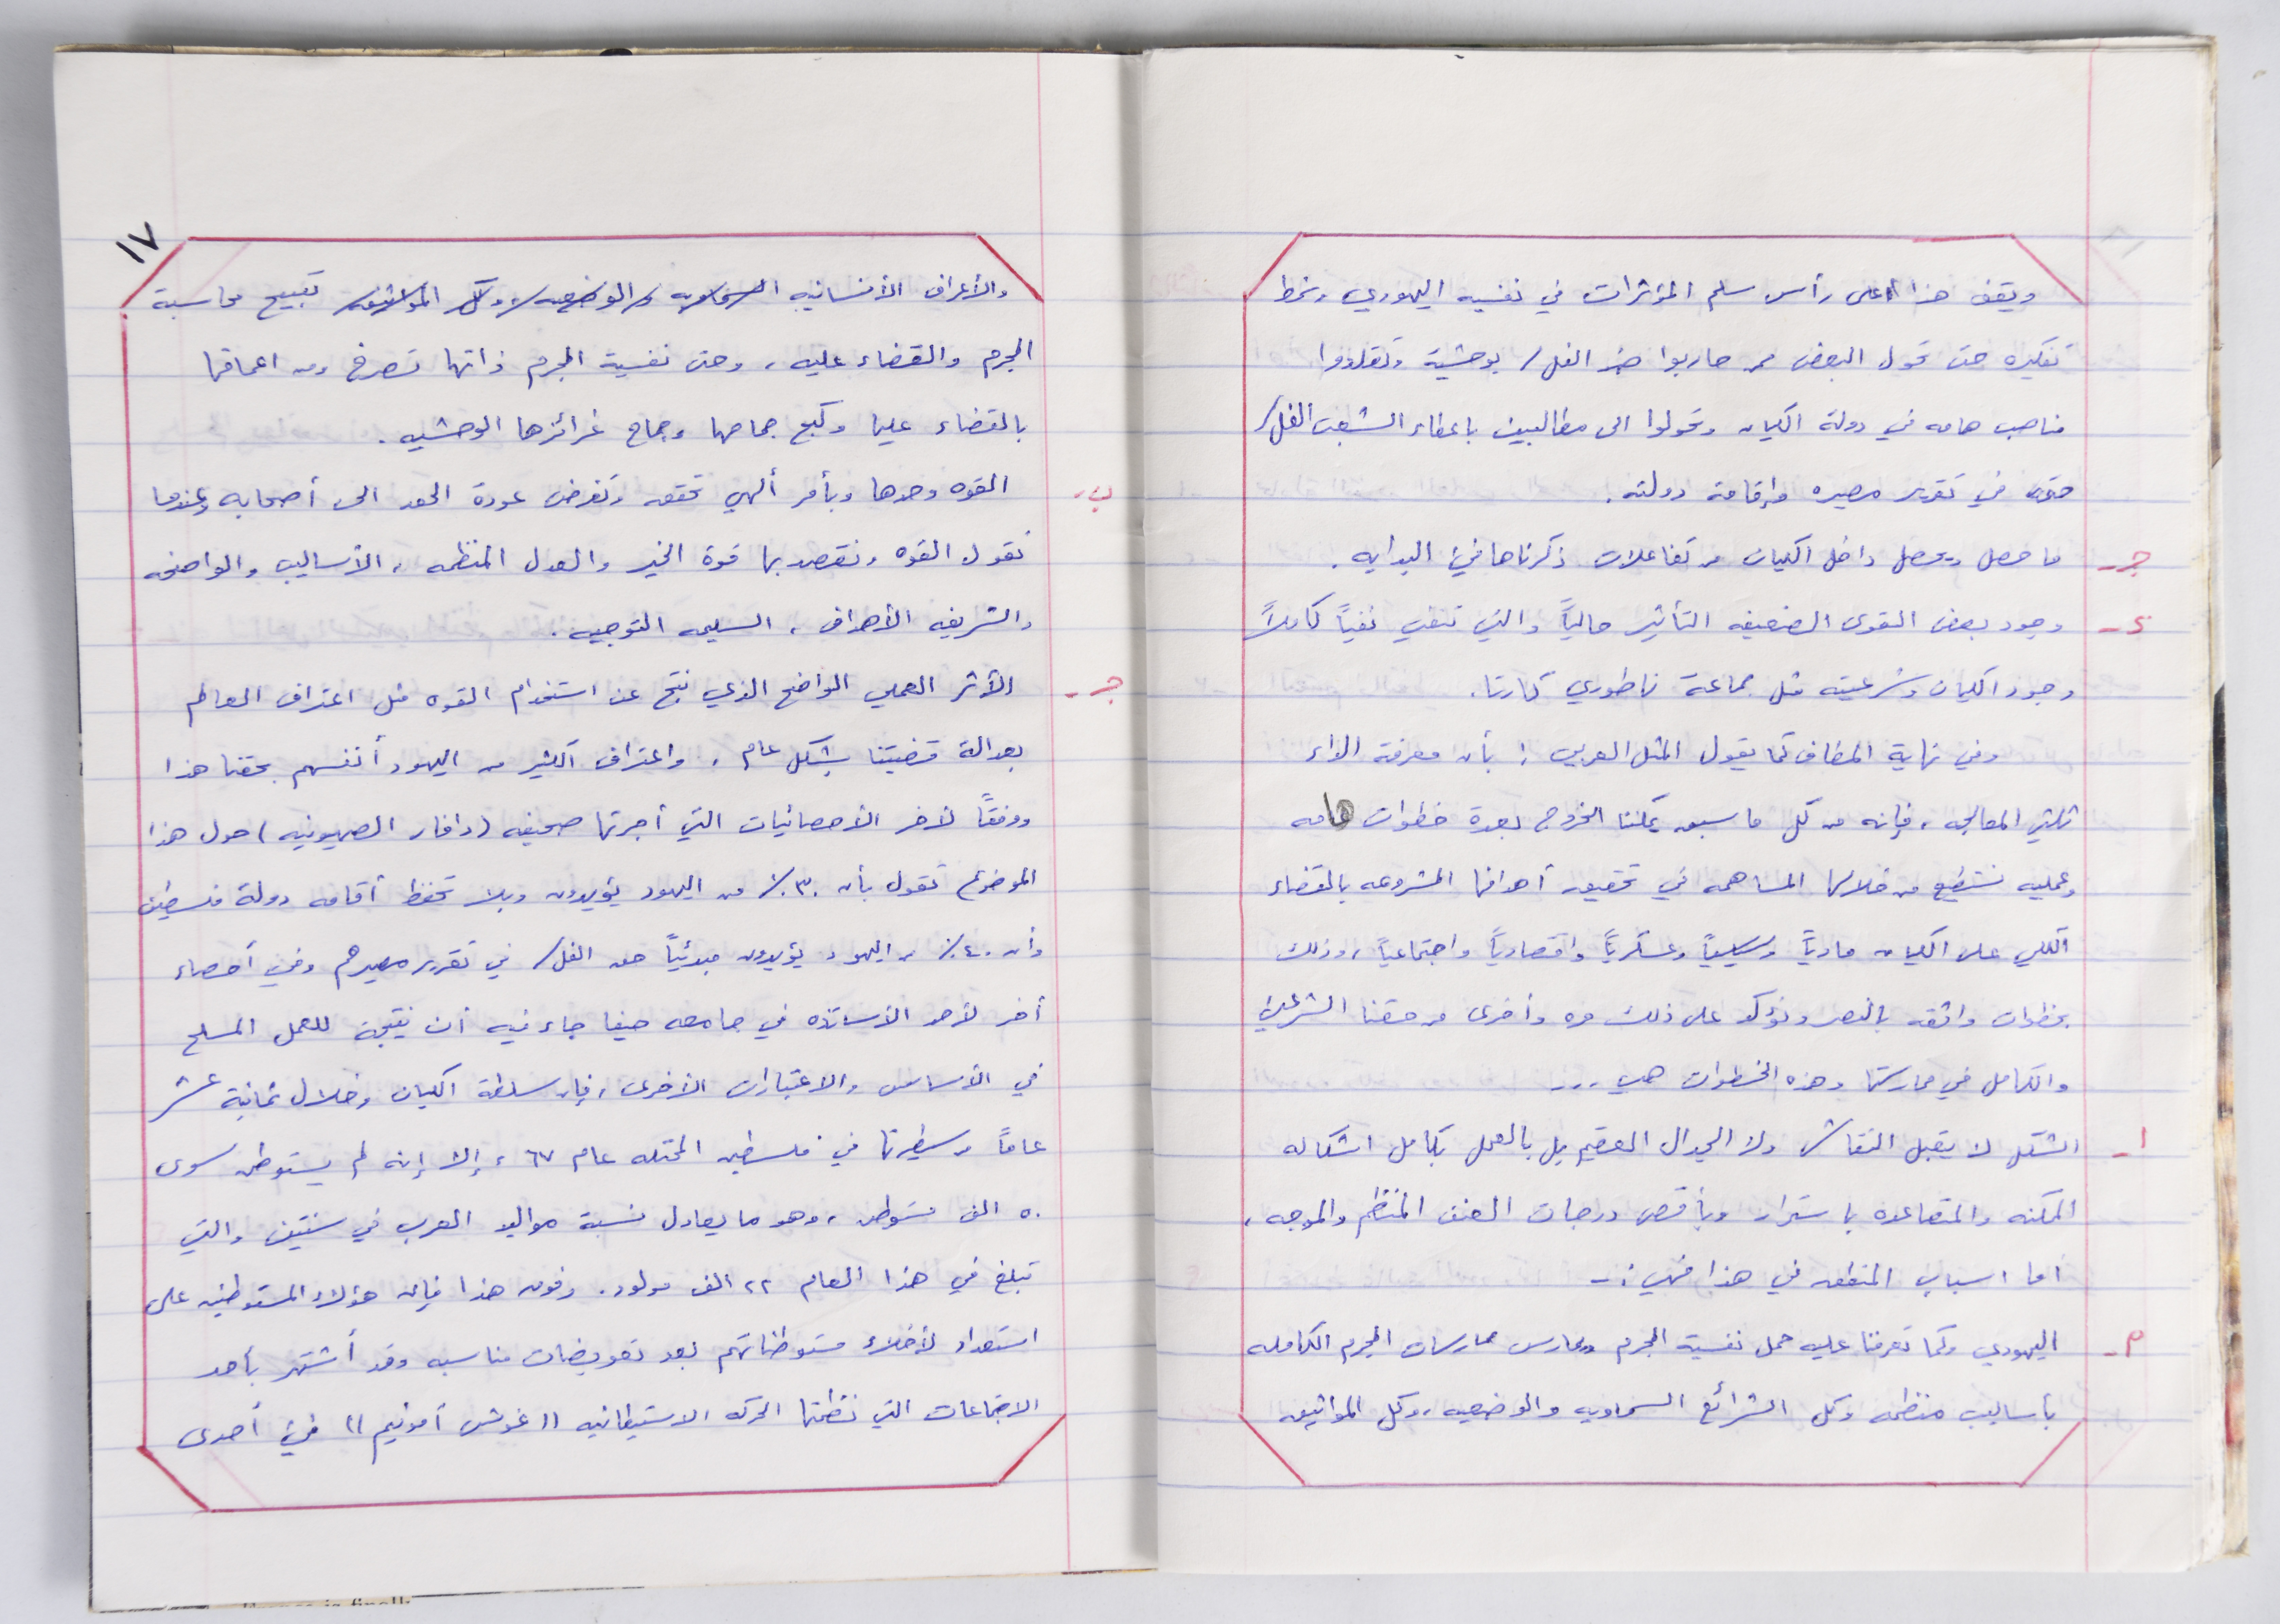 ويقف هذا على رأس سلم المؤثرات في نفسيه اليهودي ونمط
تفكيره حتى تحول البعض ممن حاربوا هذا الفل/ بوحشية وتقلدوا
مناصب هامه في دولة الكيان وتحولوا الى مطالبين باعطاء الشعب الفل/
حقه في تقرير مصيره وإقامة دولته.
جـ - ما حصل ويحصل داخل الكيان من تفاعلات ذكرناها في البدايه.
د - وجود بعض القوى الضعيفه التأثير حالياً والتي تنفي نفياً كاملاً
وجود الكيان وشرعيته مثل جماعة ناطوري كارتا.
وفي نهاية المطاف كما يقول المثل العربي : بأن معرفة الداء
ثلثي المعالجه ، فإنه من كل ما سبق يمكننا الخروج بعدة خطوات هامه
وعمليه نستطيع من خلالها المساهمه في تحقيق أهدافنا المشروعه بالقضاء
الكلي على الكيان مادياً وسياسياً وعسكرياً واقتصادياً واجتماعياً ، وذلك
بخطوات واثقه بالنصر ونؤكد على ذلك مره وأخرى من حقنا الشرعي
والكامل في ممارستها وهذه الخطوات هي ...
١ - الشكل لا يقبل النقاش ولا الجدال العقيم بل بالعمل بكامل اشكاله
الممكنه والمتصاعده باستمرار وبأقصى درجات العنف المنظم والموجه ،
أما اسباب المنطقه في هذا فهي :-
م - اليهودي وكما تعرفنا عليه حمل نفسية المجرم ويمارس ممارسات المجرم الكامله
بأساليب منظمه وكل الشرائع السماويه والوضعيه ، وكل المواثيق
١٧
والأعراف الأنسانيه السماويه والوضعيه وكل المواثيق تبيح محاسبة
المجرم والقضاء عليه ، وحتى نفسية المجرم ذاتها تصرخ ومن اعماقها
بالقضاء عليها وكبح جماحها وجماح غرائزها الوحشيه .
ب - القوه وحدها وبأمر ألهي تحقق وتفرض عودة الحق الى أصحابه وعندما
نقول القوه ونقصد بها قوة الخير والعدل المنظمه ، الأساليب والواضحه
والشريفه الأهداف ، السليمه التوجيه .
جـ - الأثر العملي الواضح الذي نتج عن استخدام القوه مثل اعتراف العالم
بعدالة قضيتنا بشكل عام ، واعتراف الكثير من اليهود أنفسهم بحقنا هذا
ووفقاً لآخر الأحصائيات التي أجرتها صحيفه (دافار الصهيونيه) حول هذا
الموضوع تقول بأن ٣٠٪ من اليهود يؤيدون وبلا تحفظ أقامه دولة فلسطين
وأن ٤٠٪ من اليهود يؤيدون مبدئياً حق الفل/ في تقرير مصيرهم وفي أحصاء
أخر لأحد الأساتذه في جامعه حيفا جاء فيه أن نتيجة للعمل المسلح
في الأساس والاعتبارات الأخرى ، فإن سلطة الكيان وخلال ثمانية عشر
عاماً من سيطرتها في فلسطين المحتله عام ٦٧ ، إلا إنه لم يستوطن سوى
٥٠ الف مستوطن ، وهو ما يعادل نسبة مواليد العرب في سنتين والتي
تبلغ في هذا العام ٢٢ الف مولود . وفوق هذا فإن هؤلاء المستوطنين على
استعداد لأخلاء مستوطناتهم بعد تعويضات مناسبه وقد أشتهر بأحد
الاجتماعات التي نظمتها الحركه الاستيطانيه ((غوش أمونيم)) في أحدى